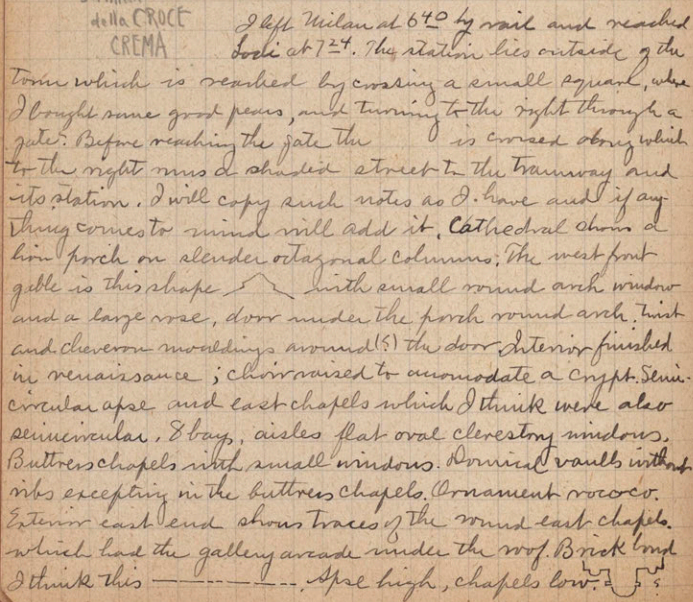 della CROCE
CREMA
I left Milan at 6 40 by rail and reached
Lodi at 7 24. The station lies outside of the
town which is reached by crossing a small square, where
I bought some good pears, and turning to the right through a
gate. Before reaching the gate the is crossed along which
to the right runs a shaded street to the tramway and
its station. I will copy such notes as I have and if any-
thing comes to mind will add it. Cathedral shows a
lion porch on slender octagonal columns; The west front
gable is this shape with small round arch window
and a large rose, door under the porch round arch. Twist
and cheveron mouldings around (?) the door. Interior finished
in renaissance; choir raised to acomodate a crypt. Semi-
circular apse and east chapels which I think were also
semicircular. 8 bays, aisles flat oval clerestory windows.
Buttress chapels with small windows. Domical vaults without
ribs excepting in the buttress chapels. Ornament rococo.
Exterior east end shows traces of the round east chapels.
which had the gallery arcade under the roof. Brick bond
I think this — - — - — - — . Apse high, chapels low.